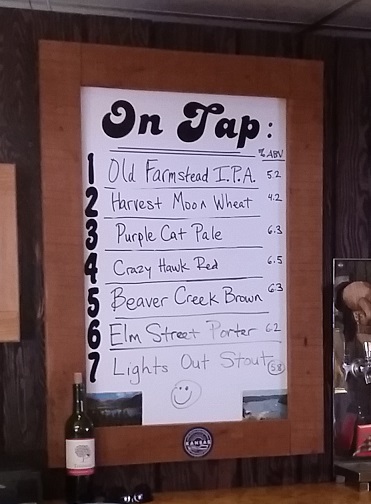 On Tap:
% ABV
1 Old Farmstead I.P.A. 5.2
2 Harvest Moon Wheat 4.2
3 Purple Cat Pale 6.3
4 Crazy Hawk Red 6.5
5 Beaver Creek Brown 6.3
6 Elm Street Porter 6.2
7 Lights Out Stout 5.8
KANSAS